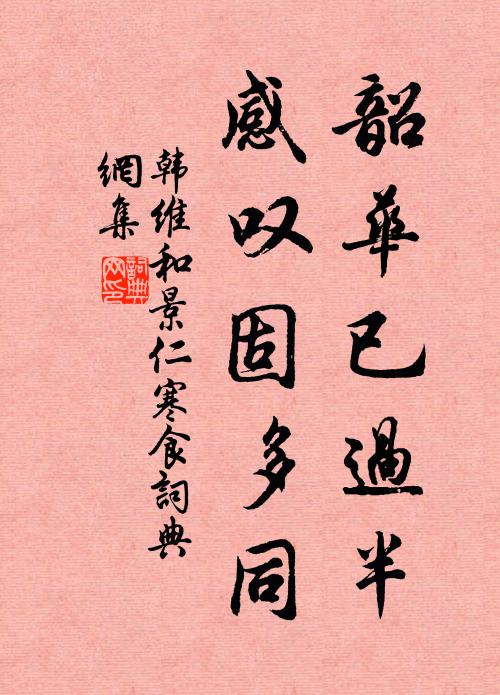 韶華已過半
感叹固多同
韩维和景仁寒食詞典
網集
詞典
网印